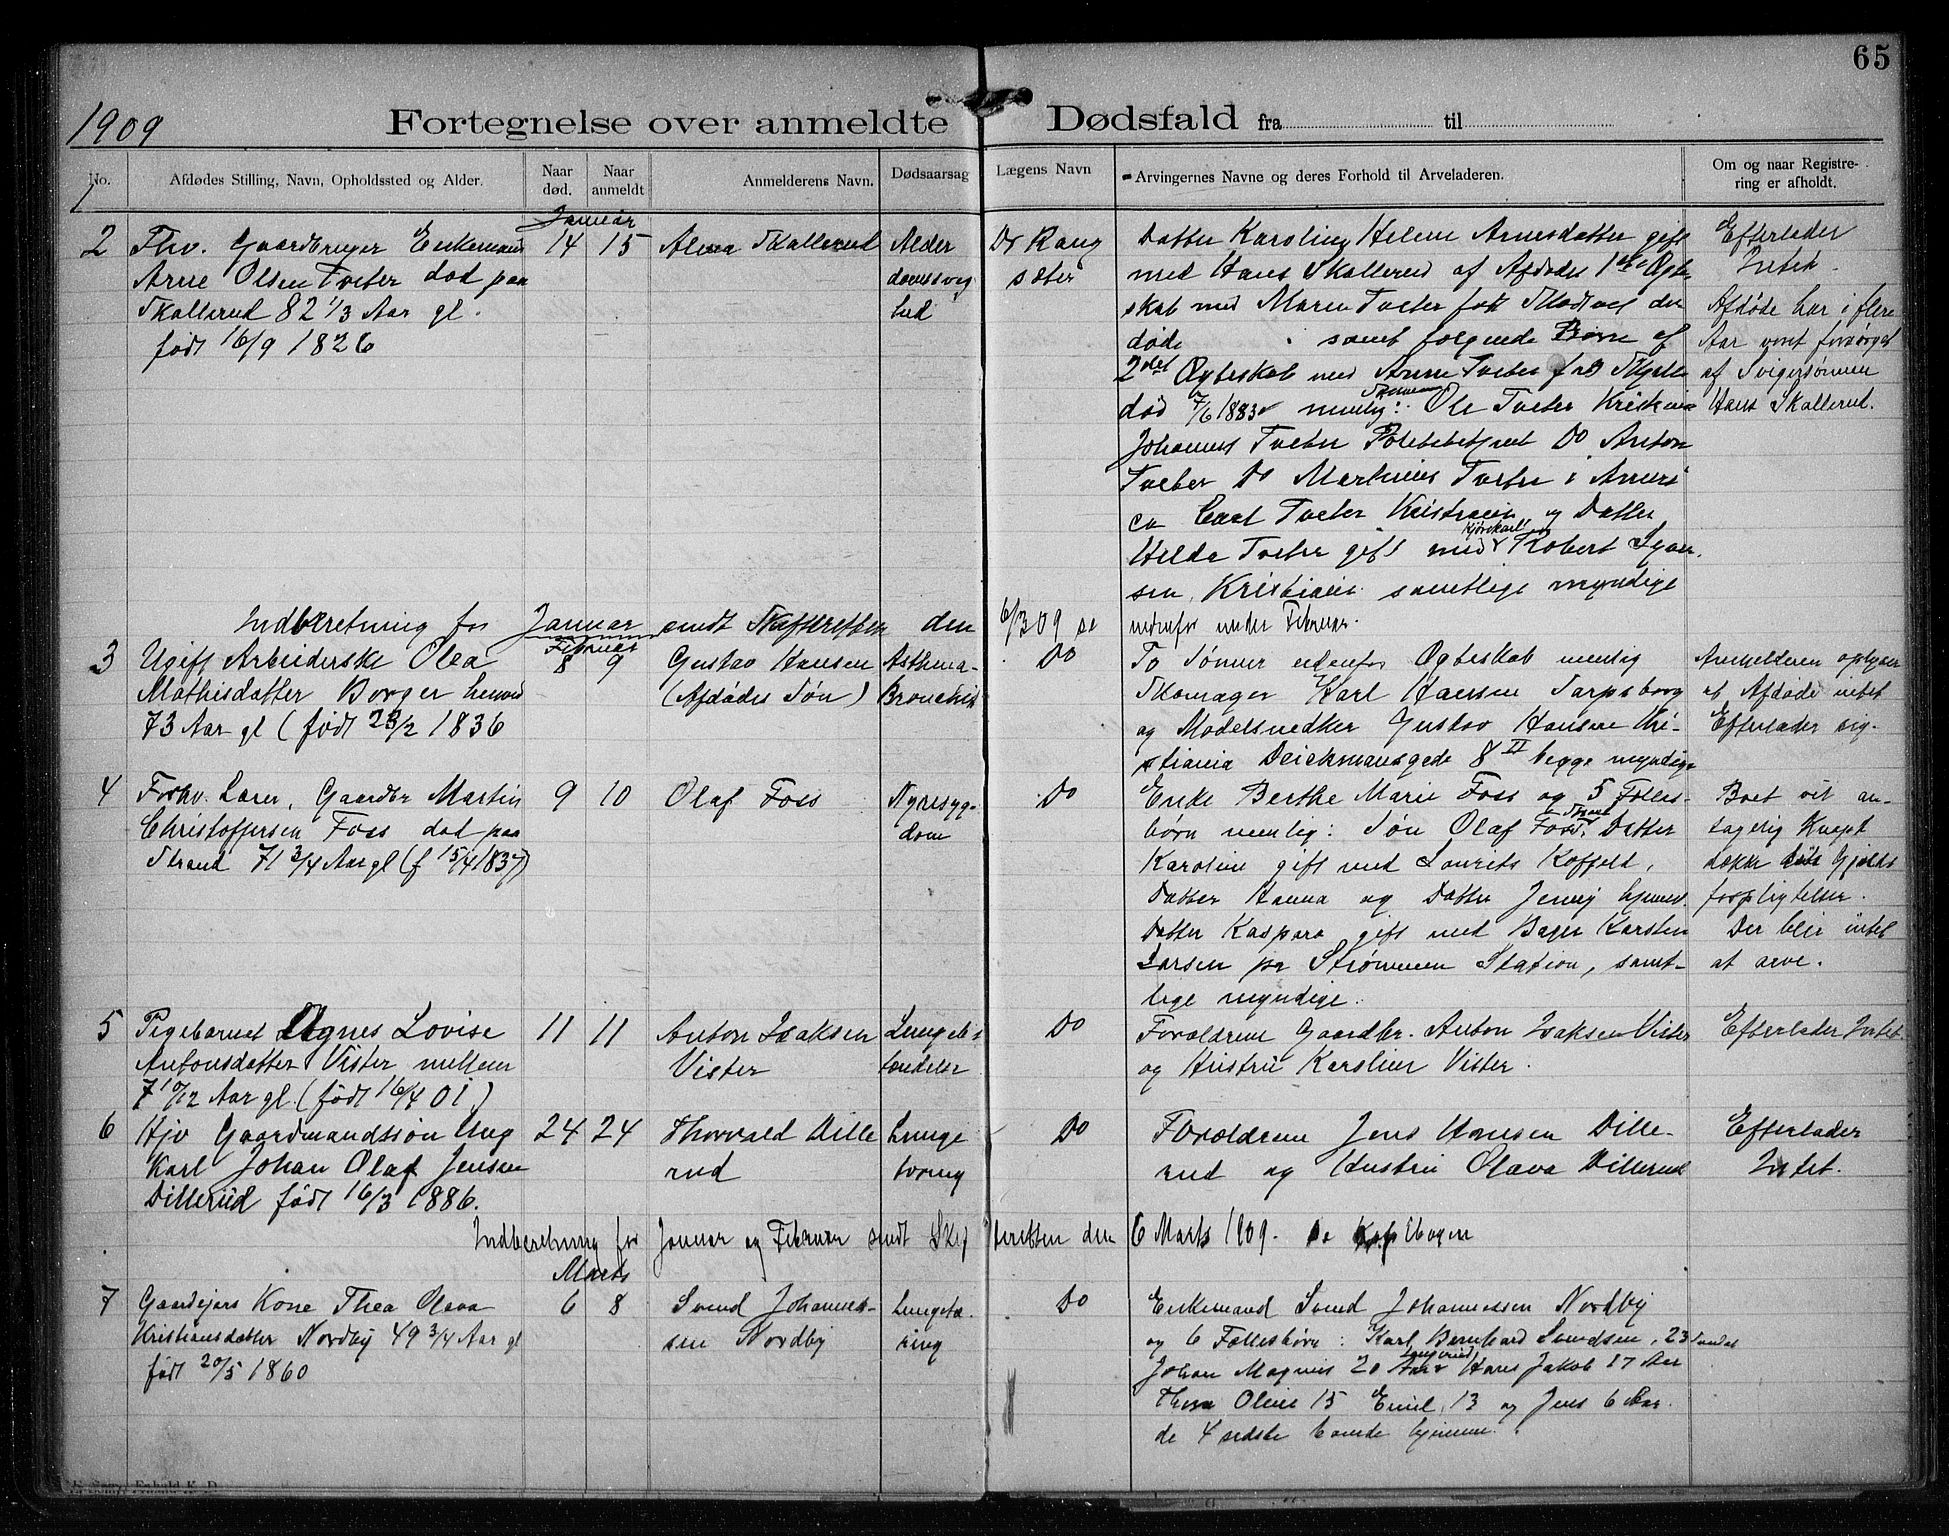 65
1909
Fortegnelse over anmeldte Dødsfald fra til
No.
Afdødes Stilling, Navn, Opholdssted og Alder.
Naar død.
Naar anmeldt
Anmelderens Navn.
Dødsaarsag
Lægens Navn
Arvingernes Navne og deres Forhold til Arveladeren.
Om og naar Registre-
ring er afholdt.
1
Januar
2 Fhv. Gaardbruger Enkemand
Arne Olsen Tveter død paa
Skallerud 82 1/3 Aar gl.
født 16/9 1826
14 15 Skallerud
Alder
domssvag
hed
Dr Rang
sæter
Datter Karoline Helene Arnesdatter gift
med Hans Skallerud af Afdødes 1ste Ægte
skab med Maren Tveter født den
døde samt følgende Børn af
2det Ægteskab med Anne Tveter
død 7/6 1883 nemlig: Ole Tveter Kristiania
Johannes Tveter Do Anton
Tveter Do Martinius Tveter i Ameri
ca Carl Tveter Kristiania og Datter
Kjørekarl
Hilda Tveter gift med Robert Syver
sen, Kristiania samtlige myndige
Efterlader
Intet.
Afdøde har i flere
Aar vært forsørget
af Svigersønnen
Hans Skallerud.
Indberetning for Januar sendt Skifteretten den 6/3 09 se nedenfor under Februar.
Februar
3 Ugift Arbeiderske Olea
Mathisdatter Borger
73 Aar gl (født 23/2 1836
8 9 Gustav Hansen
(Afdødes Søn)
Asthma-
Bronchit
Do
To Sønner udenfor Ægteskab nemlig
Skomager Karl Hansen Sarpsborg
og Modelsnedker Gustav Hansen Kri-
stiania Deichmansgade 8 II begge myndige
Anmelderen oplyser
at Afdøde intet
Efterlader sig.
4 Forhv. Lærer, Gaardbr Martin
Christoffersen Foss død paa
Strand 71 3/4 Aar gl (f 15/4 1837)
9 10 Olaf Foss
Nyresyg-
dom
Do
Enke Berthe Marie Foss og 5 Fælles-
børn nemlig: Søn Olaf Foss, Strand Datter
Karoline gift med Laurits Koffeld,
Datter Hanna og Datter Jenny hjemme
Datter Kaspara gift med Bager Karsten
Larsen pr Strømmen Station, samt-
lige myndige.
Boet vil an-
tagelig knapt
dække sine Gjælds
forpligtelser.
Der blir intet
at arve.
5 Pigebarnet Agnes Lovise
Antonsdatter Vister mellem
7 10/12 Aar gl. (født 16/4 01)
11 11 Anton Isaksen
Vister
Lungebe-
tændelse
Do
Forældrene Gaardbr. Anton Isaksen Vister
og Hustru Karoline Vister.
Efterlader Intet.
6 Hjv Gaardmandssøn Ung
Karl Johan Olaf Jensen
Dillerud født 16/3 1886.
24 24 Thorvald Dille
rud
Lunge
tæring
Do
Forældrene Jens Hansen Dille-
rud og Hustru Olava Dillerud
Efterlader
Intet.
Indberetning for Januar og Februar sendt Skifteretten den 6 Marts 1909. se Kopibogen
Marts
7 Gaardejers Kone Thea Olava
Kristiansdatter Nordby 49 3/4 Aar gl
født 20/5 1860
6 8 Svend Johannes-
sen Nordby
Lungetæ-
ring
Do
Enkemand Svend Johannessen Nordby
og 6 Fællesbørn: Karl Bernhard Svendsen, 23
Johan Magnus 20 Aar Hans Jakob 17 Aar
Thora Oline 15 Emil 13 og Jens 6 Aar.
de 4 sidste boende hjemme.